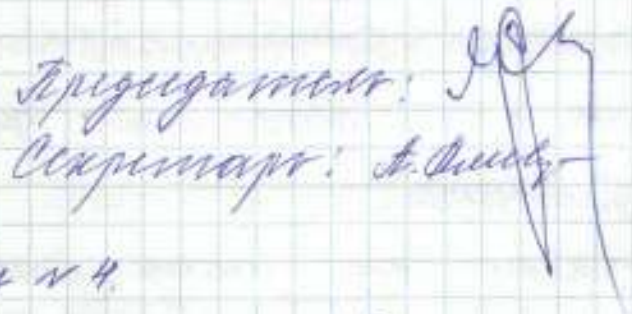 Председатель:
Секретарь: А.
№ 4.